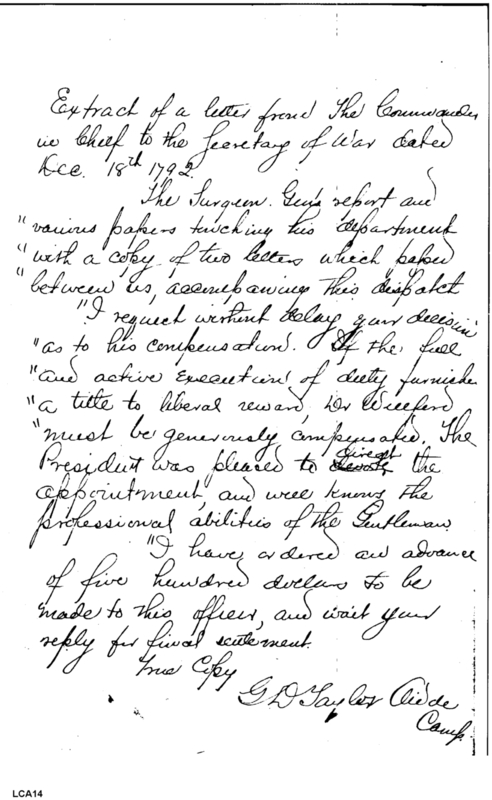 Extract of a letter from The Commander
in Cheif to the Secretary of War dated
Dec. 18th 1792.
The Surgeon. Gen's report and
"various papers touching his department
"with a copy of two letters which passed
"between us, accompanying this dispatch
"I request without delay your decision
"as to his compensation. If the full
"and active execution of duty furnishes
"a title to liberal reward, Dr
"must be generously compensated. The
President was pleased to direct the
appointment, and well knows the
professional abilities of the Gentleman
"I have ordered an advance
of five hundred dollars to be
made to this officer, and wait your
reply for final settlement.
True Copy
G D Taylor Aid de
Camp.
LCA14